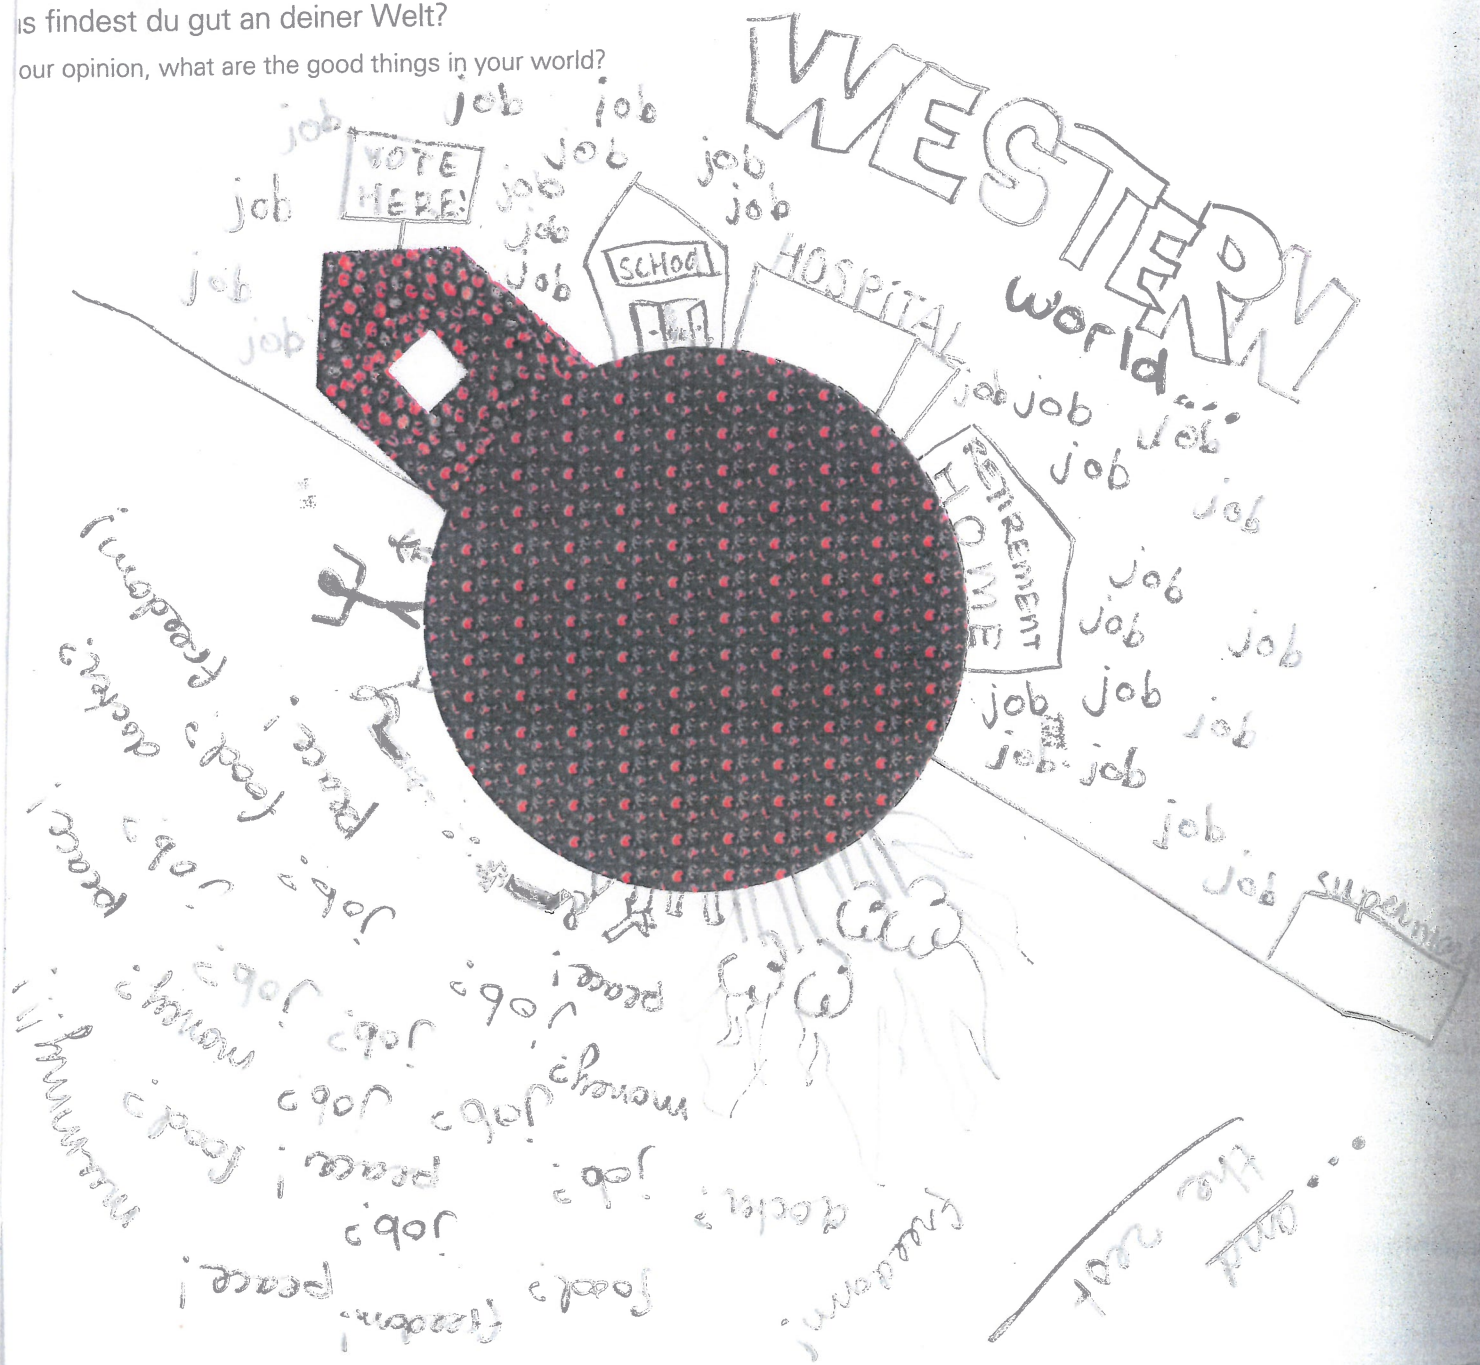 s findest du gut an deiner Welt?
our opinion, what are the good things in your world?
WESTERN
world...
job
job
job
VOTE
HERE!
job
job
job
job
job
job
job
job
job
job
SCHOOL
HOSPITAL
job
job
job
job
job
RETIREMENT
HOME
job
job
job
job
job
job
job
job
job
job
supermar
freedom!
docker?
food?
peace!
peace!
job?
job?
mummy!!
money?
job?
job?
job?
peace!
money?
job?
job?
food?
peace!
job?
job?
docter?
freedom!
peace!
freedom!
food?
and
the
rest
...